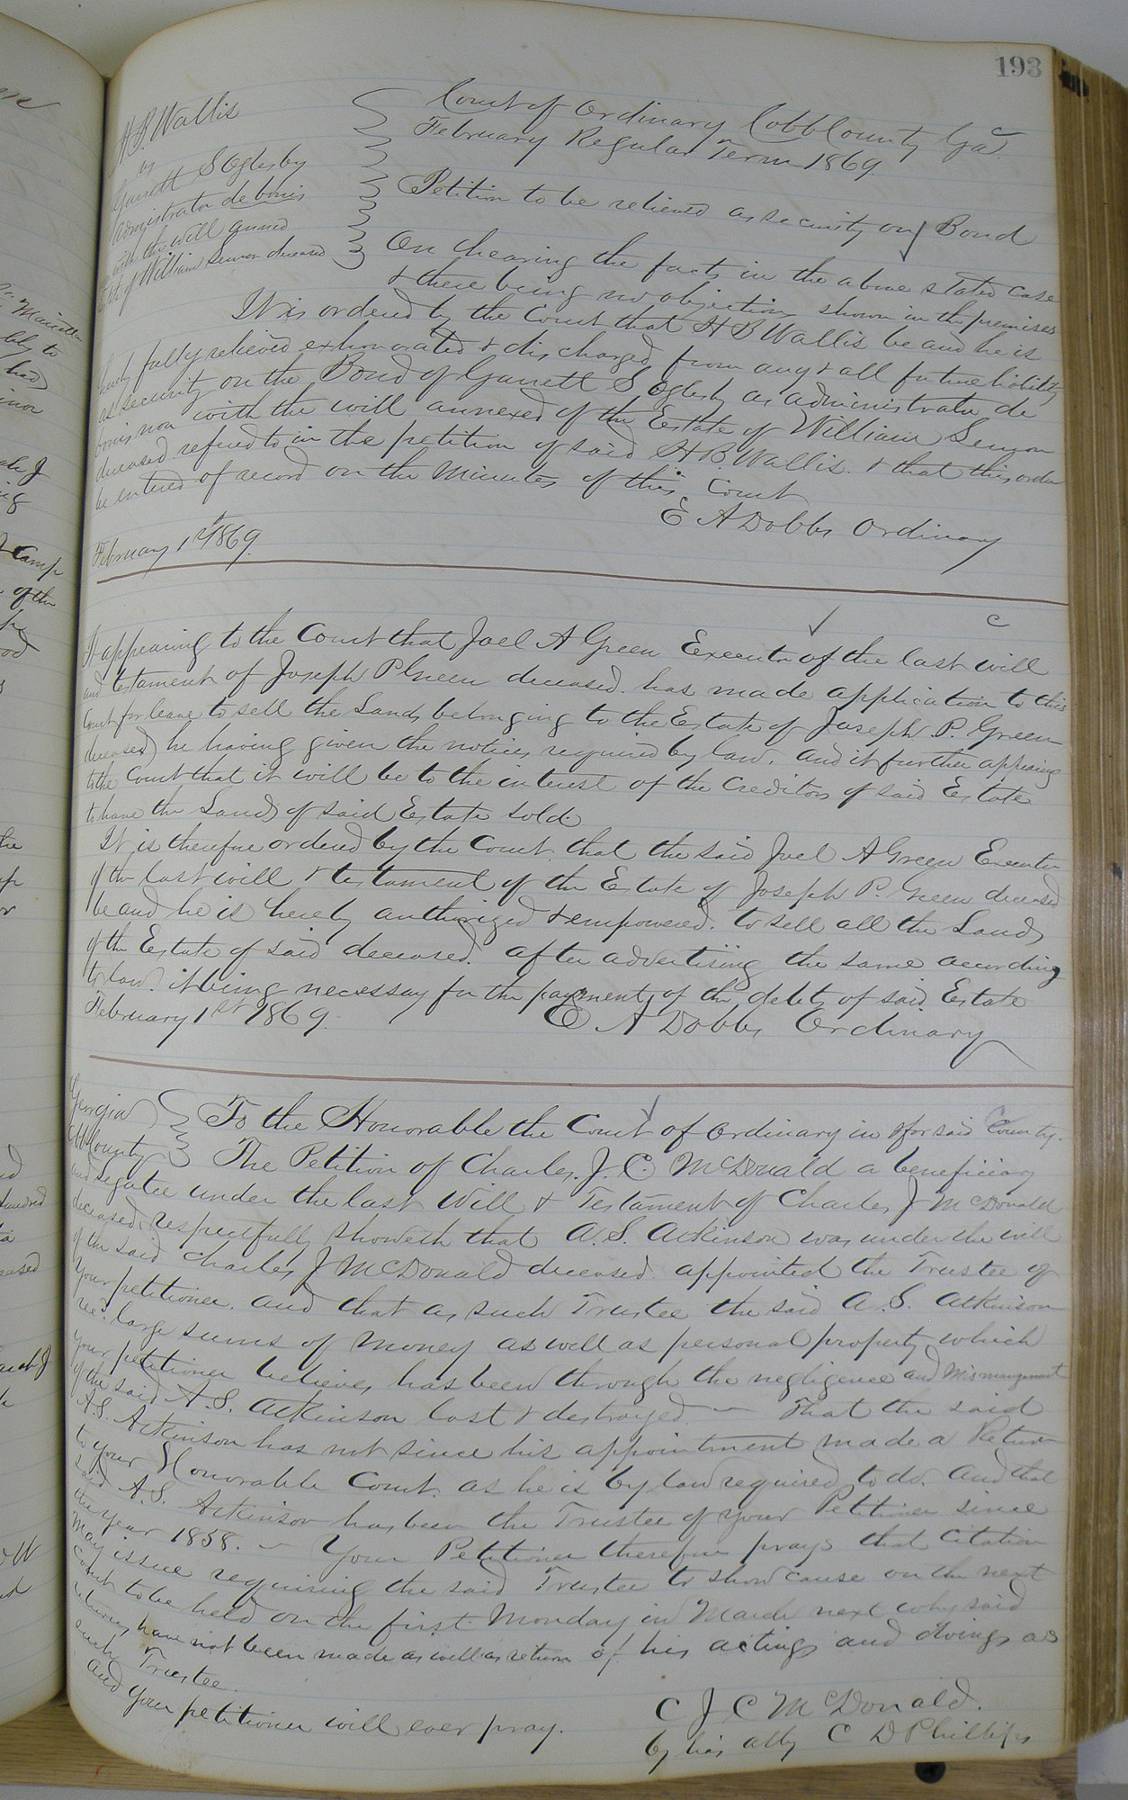 193
H. B. Wallis
vs
Garrett S Oglesby
Administrator de bonis
non with the will annexed
Est of William Lemon deceased
Court of Ordinary Cobb County Ga.
February Regular Term 1869
Petition to be relieved as security on Bond
On hearing the facts in the above stated case
& there being no objection shown in the premises
It is ordered by the Court that H B Wallis be and he is
hereby fully relieved exhonorated & discharged from any & all future liability
as security on the Bond of Garrett S Oglesby as administrator de
bonis non with the will annexed of the Estate of William Lemon
deceased refered to in the petition of said H. B. Wallis. & that this order
be entered of record on the Minutes of this Court
E A Dobbs Ordinary
February 1st 1869.
It appearing to the Court that Joel A Green Executor of the last will
and testament of Joseph P Green deceased. has made application to this
Court for leave to sell the Lands belonging to the Estate of Joseph P. Green
deceased he having given the notices required by law. and it further appearing
to the Court that it will be to the interest of the Creditors of said Estate
to have the Lands of said Estate sold.
It is therefore ordered by the Court that the said Joel A Green Executor
of the last will & testament of the Estate of Joseph P. Green deceased
be and he is hereby authorized & empowered. to sell all the Lands
of the Estate of said deceased. after advertising the same according
to law. it being necessay for the payment of the debts of said Estate
February 1st 1869.
E A Dobbs Ordinary
Georgia
Cobb County
To the Honorable the Court of Ordinary in & for said County.
The Petition of Charles. J. C. McDonald a beneficiary
and Legatee under the last Will & Testament of Charles J McDonald
deceased, respectfully showeth that A. S. Atkinson was under the will
of the said Charles J McDonald deceased appointed the Trustee of
your petitioner. and that as such Trustee the said A. S. Atkinson
recd. large sums of money as well as personal property which
your petitioner believes has been through the negligence and Mismanagement
of the said A. S. Atkinson lost & destroyed. — That the said
A. S. Atkinson has not since his appointment made a Return
to your Honorable Court. as he is by law required to do. and that
said A. S. Atkinson has been the Trustee of your Petitioner since
the year 1858. — Your Petitioner therefore prays that Citation
May issue requiring the said Trustee to show cause on the next
Court to be held on the first Monday in March next why said
returns have not been made as well as return of his actings and doings as
such Trustee.
and your petitioner will ever pray.
C J C McDonald.
by his atty C D Phillips